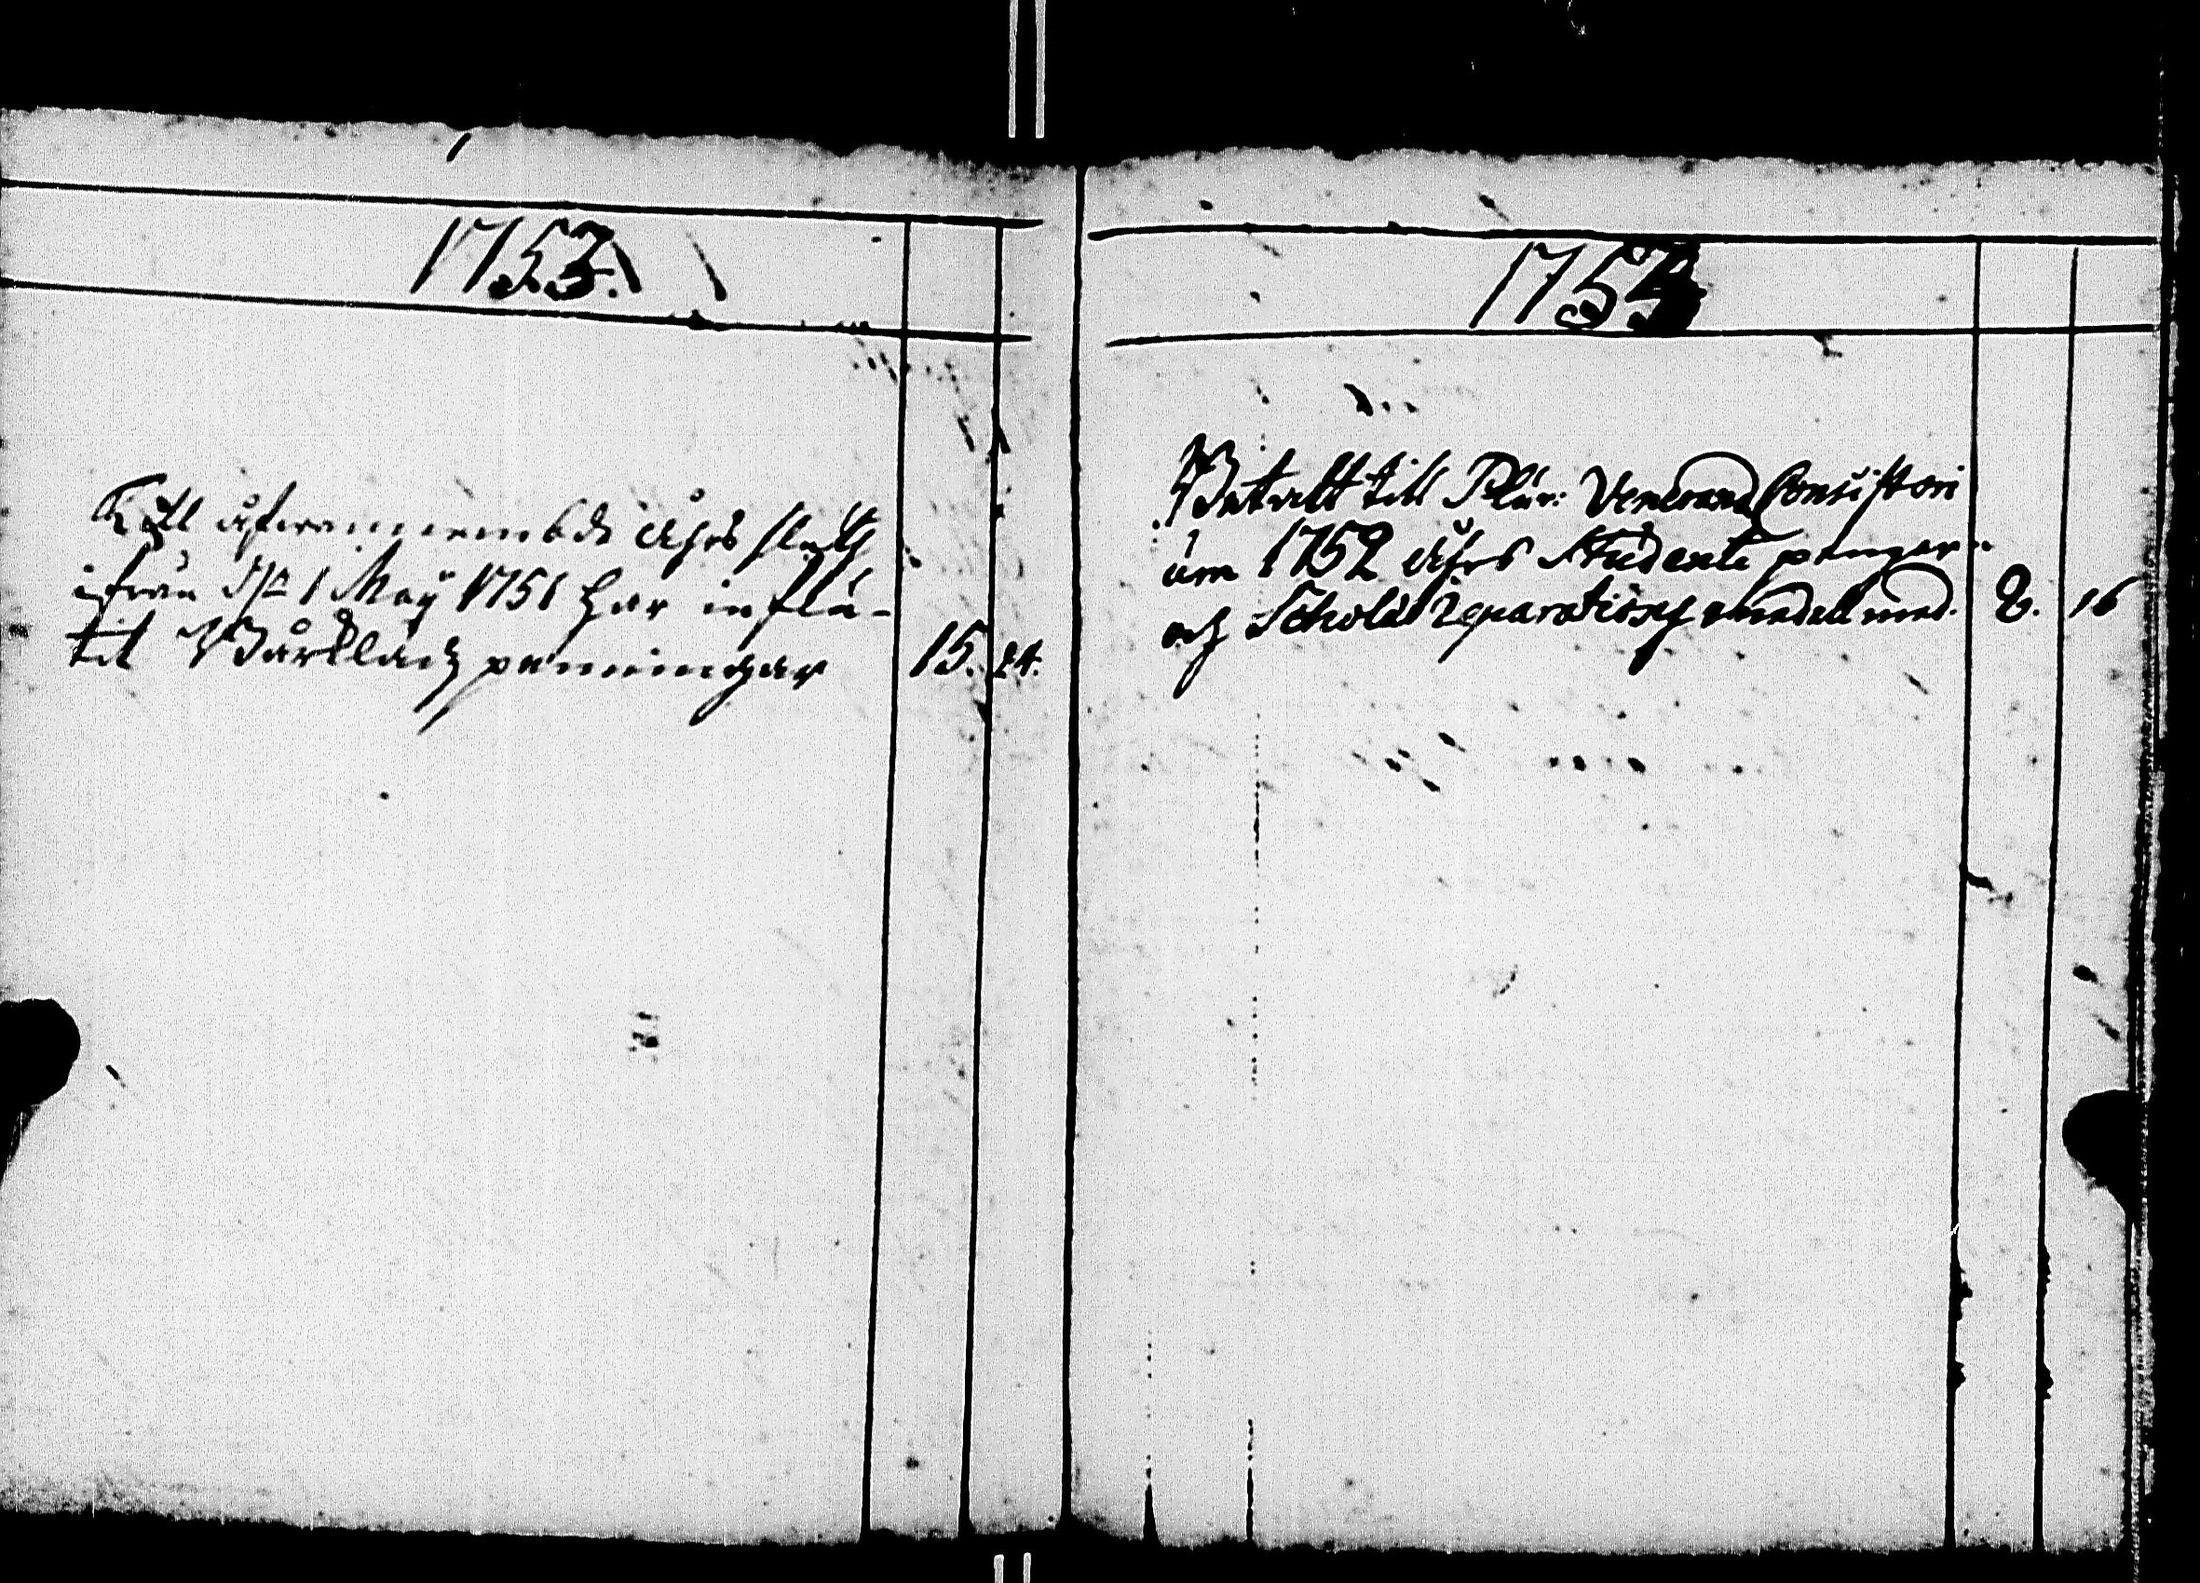 1753.
Till ofvannembde åhrs sluth
ifrån d. 1 May 1751 har influ-
tit Bårklädz penningar 15. 24.
1753
Betalt till Plur: Venerand Consistori
um 1752 åhrs Studente pengar
och Schola Reparations medell med. 8. 16